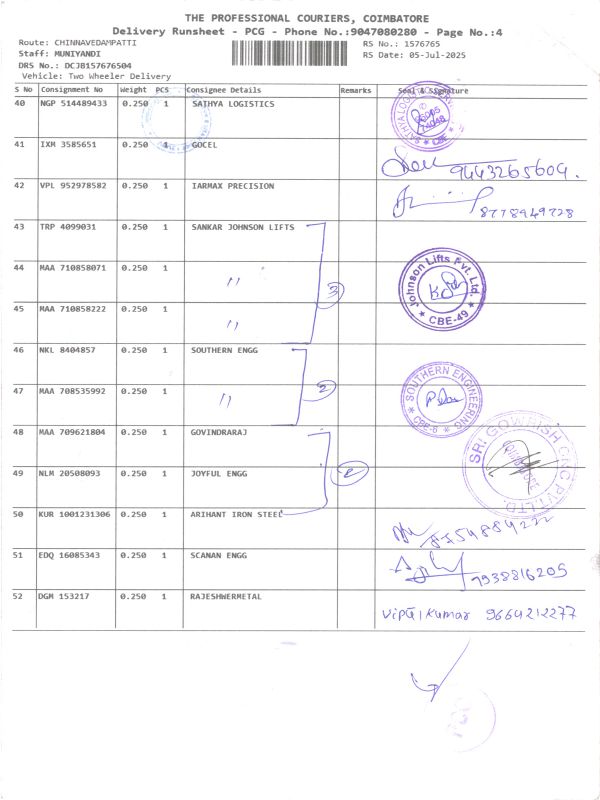 THE PROFESSIONAL COURIERS, COIMBATORE
Delivery Runsheet - PCG - Phone No.:9047080280 - Page No.:4
Route: CHINNAVEDAMPATTI RS No.: 1576765
Staff: MUNIYANDI RS Date: 05-Jul-2025
DRS No.: DCJ8157676504
Vehicle: Two Wheeler Delivery
S No Consignment No Weight PCS Consignee Details Remarks Seal & Signature
40 NGP 514489433 0.250 1 SATHYA LOGISTICS
41 IXM 3585651 0.250 1 GOCEL 9443265609.
42 VPL 952978582 0.250 1 IARMAX PRECISION 8778949728
43 TRP 4099031 0.250 1 SANKAR JOHNSON LIFTS
44 MAA 710858071 0.250 1 " 3 Johnson Lifts Pvt. Ltd. CBE-49
45 MAA 710858222 0.250 1 "
46 NKL 8404857 0.250 1 SOUTHERN ENGG
47 MAA 708535992 0.250 1 " 2 SOUTHERN ENGINEERING CBE-6
48 MAA 709621804 0.250 1 GOVINDRARAJ
49 NLM 20508093 0.250 1 JOYFUL ENGG SRI GOWRISH CNC PVT LTD.
50 KUR 1001231306 0.250 1 ARIHANT IRON STEEL
51 EDQ 16085343 0.250 1 SCANAN ENGG 7938816205
52 DGM 153217 0.250 1 RAJESHWERMETAL Vipul Kumar 9664212277